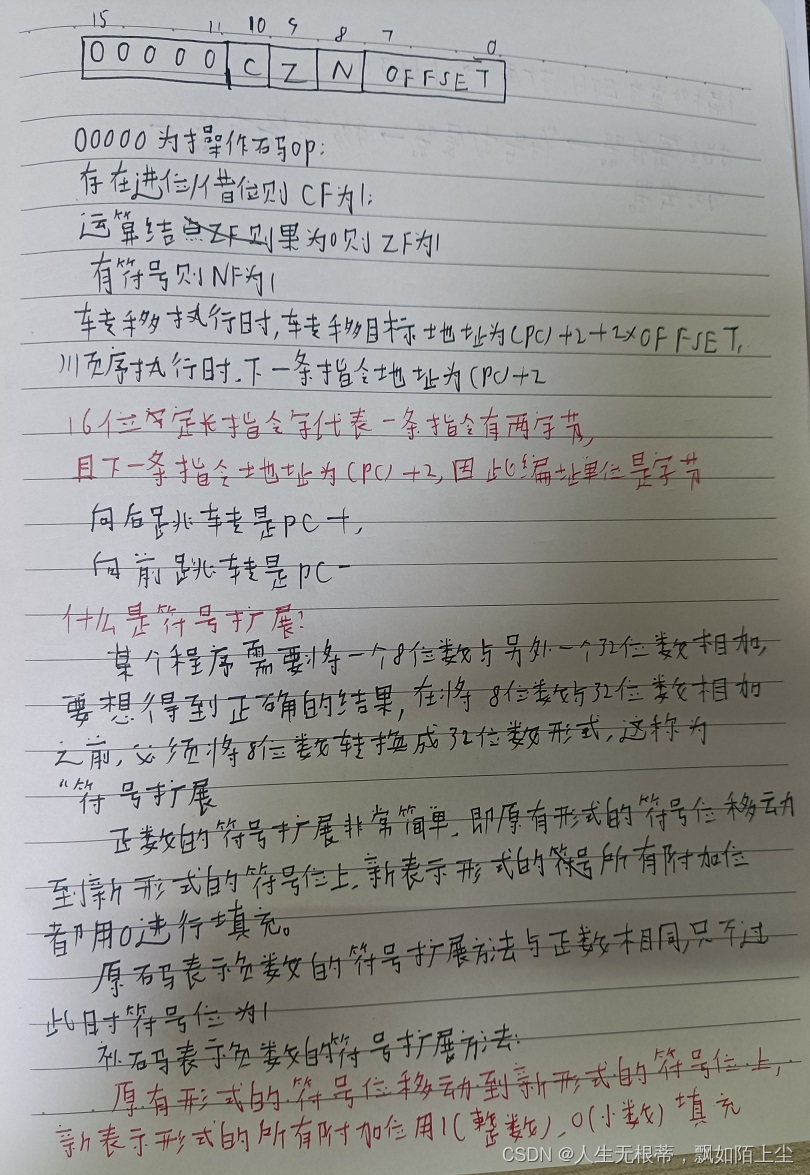 15 11 10 9 8 7 0
00000 C Z N OFFSET
00000为操作码OP:
存在进位/借位则CF为1;
运算结果为0则ZF为1
有符号则NF为1
转移执行时,转移目标地址为(PC)+2+2×OFFSET,
顺序执行时.下一条指令地址为(PC)+2
16位定长指令字代表一条指令有两字节,
且下一条指令地址为(PC)+2,因此编址单位是字节
向后跳转是PC+,
向前跳转是PC-
什么是符号扩展?
某个程序需要将一个8位数与另外一个32位数相加,
要想得到正确的结果,在将8位数与32位数相加
之前,必须将8位数转换成32位数形式,这称为
“符号扩展
正数的符号扩展非常简单,即原有形式的符号位移动
到新形式的符号位上,新表示形式的符号所有附加位
都用0进行填充。
原码表示负数的符号扩展方法与正数相同,只不过
此时符号位为1
补码表示负数的符号扩展方法:
原有形式的符号位移动到新形式的符号位上,
新表示形式的所有附加位用1(整数)、0(小数)填充
CSDN @人生无根蒂，飘如陌上尘